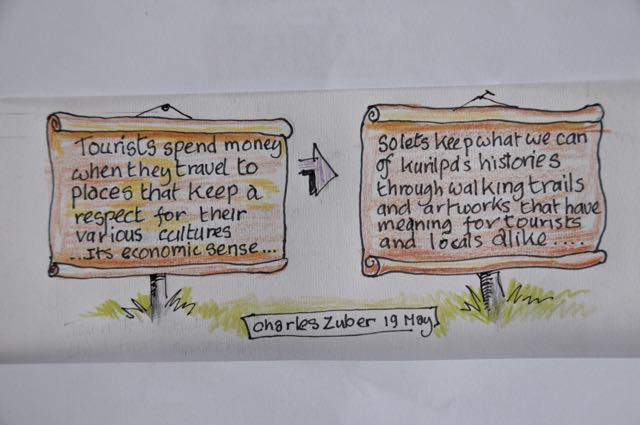 Tourists spend money
when they travel to
places that keep a
respect for their
various cultures
...Its economic sense...
So lets keep what we can
of kurilpds histories
through walking trails
and artworks that have
meaning for tourists
and locals alike ....
Charles Zuber 19 May